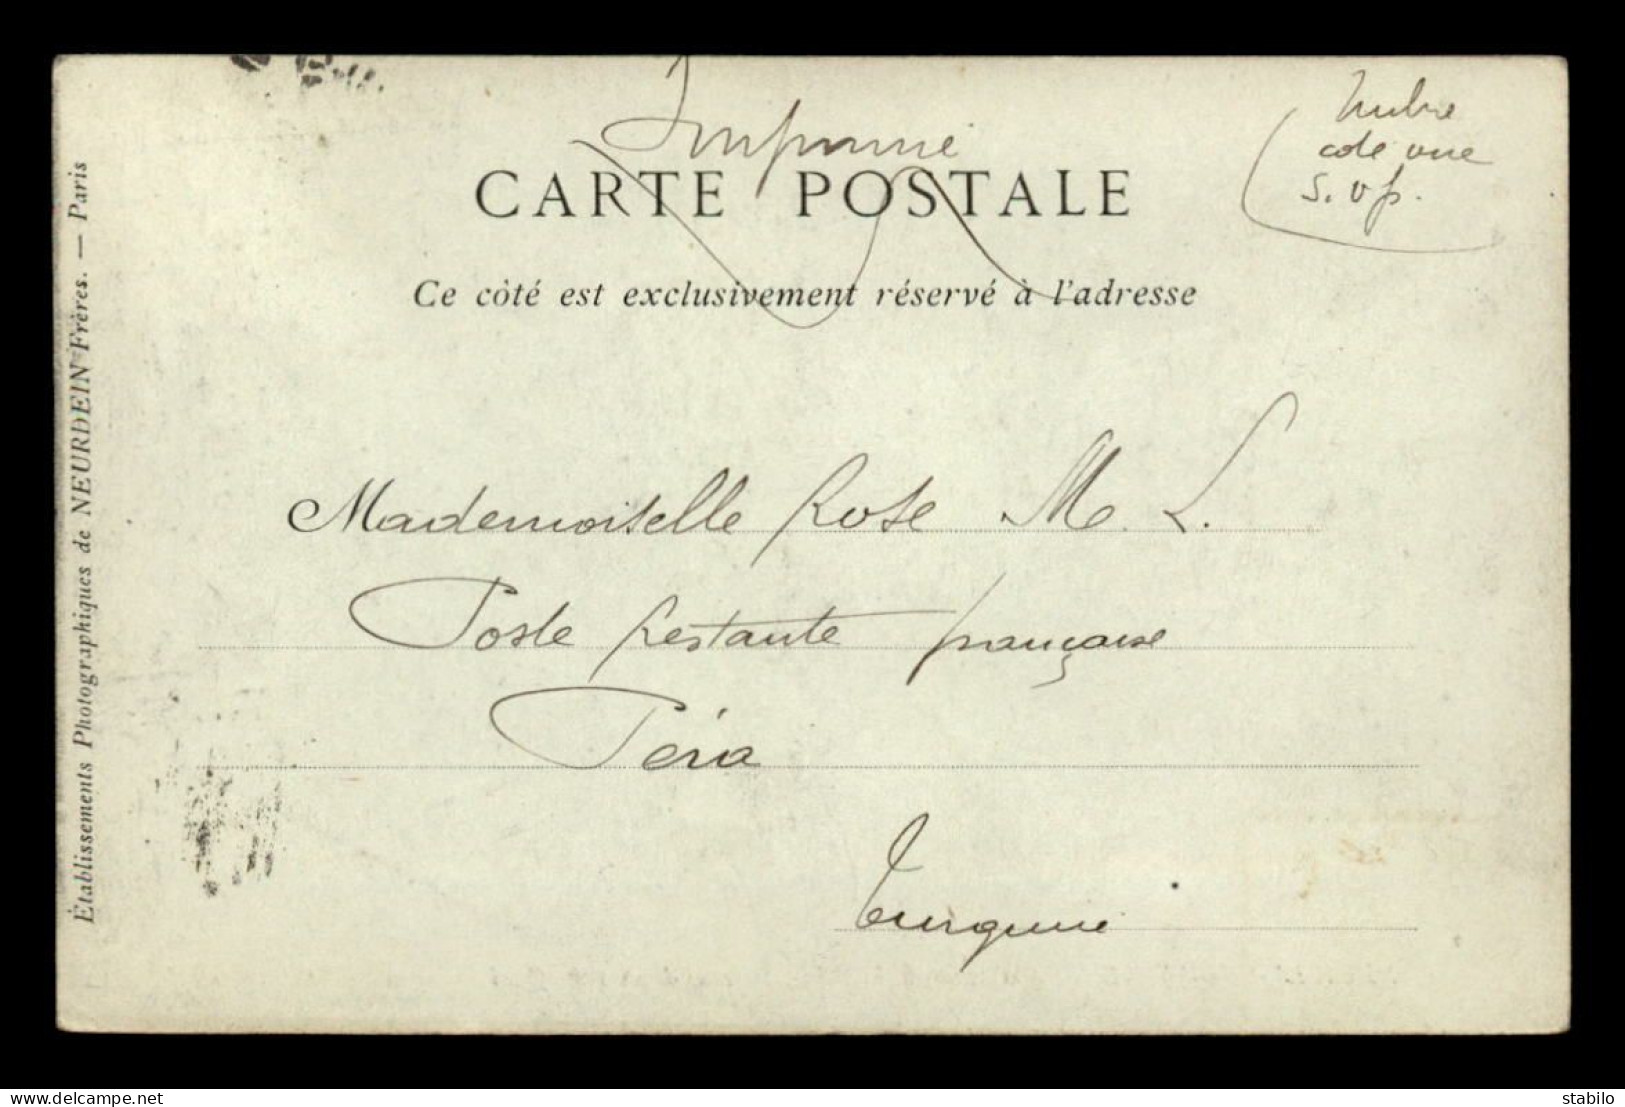 Imprimé
Timbre
coté vue
s. v p.
CARTE POSTALE
Ce côté est exclusivement réservé à l'adresse
Mademoiselle Rose M. L.
Poste Restante française
Péra
Turquie
Établissements Photographiques de NEURDEIN Frères. — Paris
delcampe.net
stabilo